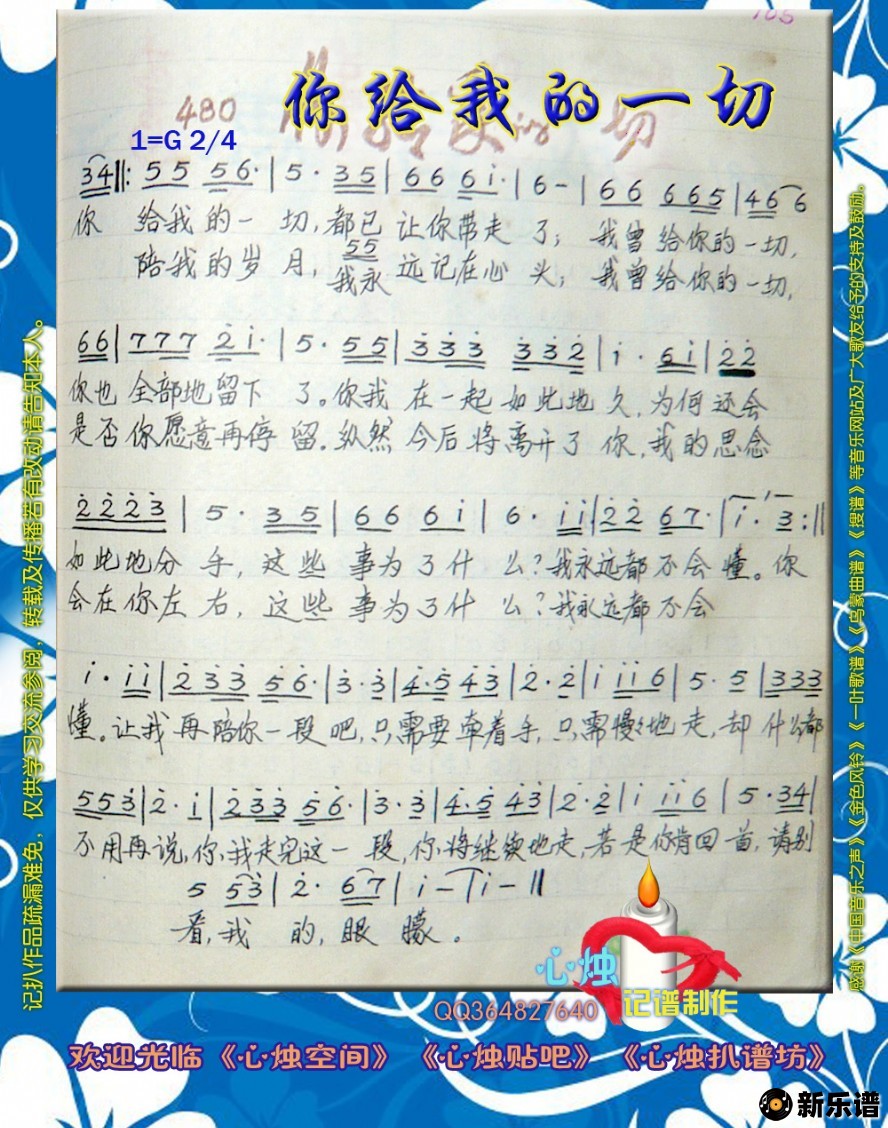 105
480
你给我的一切
1=G 2/4
34‖: 55 56· | 5· 35 | 66 6i· | 6- | 66 665 | 46 6
你 给我的一 切，都已 让你带走 了； 我曾给你的一切，
55
陪我的岁 月，我永 远记在心 头； 我曾给你的一切，
66 | 777 2i· | 5· 55 | 333 332 | i· 6i | 22
你也 全部地留下 了。你我 在一起 如此地 久，为何还会
是否 你愿意再停 留。纵然 今后将离开了 你，我的思念
2223 | 5· 35 | 66 6i | 6· ii | 22 67· | i· 3 :‖
如此地分 手，这些 事为了什 么？我永远都不会 懂。你
会在你左 右，这些 事为了什 么？我永远都不会
i· ii | 233 56· | 3·3 | 4·5 43 | 2·2 | i ii6 | 5· 5 | 333
懂。让我 再陪你一段吧，只需要牵着手，只需慢々地走，却什么都
553 | 2· i | 233 56· | 3·3 | 4·5 43 | 2·2 | i ii6 | 5·34 |
不用再说，你，我走完这一段，你，将继续地走，若是你肯回首，请别
5 53 | 2· 67 | i- | i- ‖
看，我 的，眼 朦。
心烛
记谱制作
QQ364827640
欢迎光临《心烛空间》《心烛贴吧》《心烛扒谱坊》
新乐谱
记扒作品疏漏难免，仅供学习交流参阅，转载及传播若有改动请告知本人。
感谢《中国音乐之声》《金色风铃》《一叶歌谱》《乌蒙曲谱》《搜谱》等音乐网站及广大歌友给予的支持及鼓励。